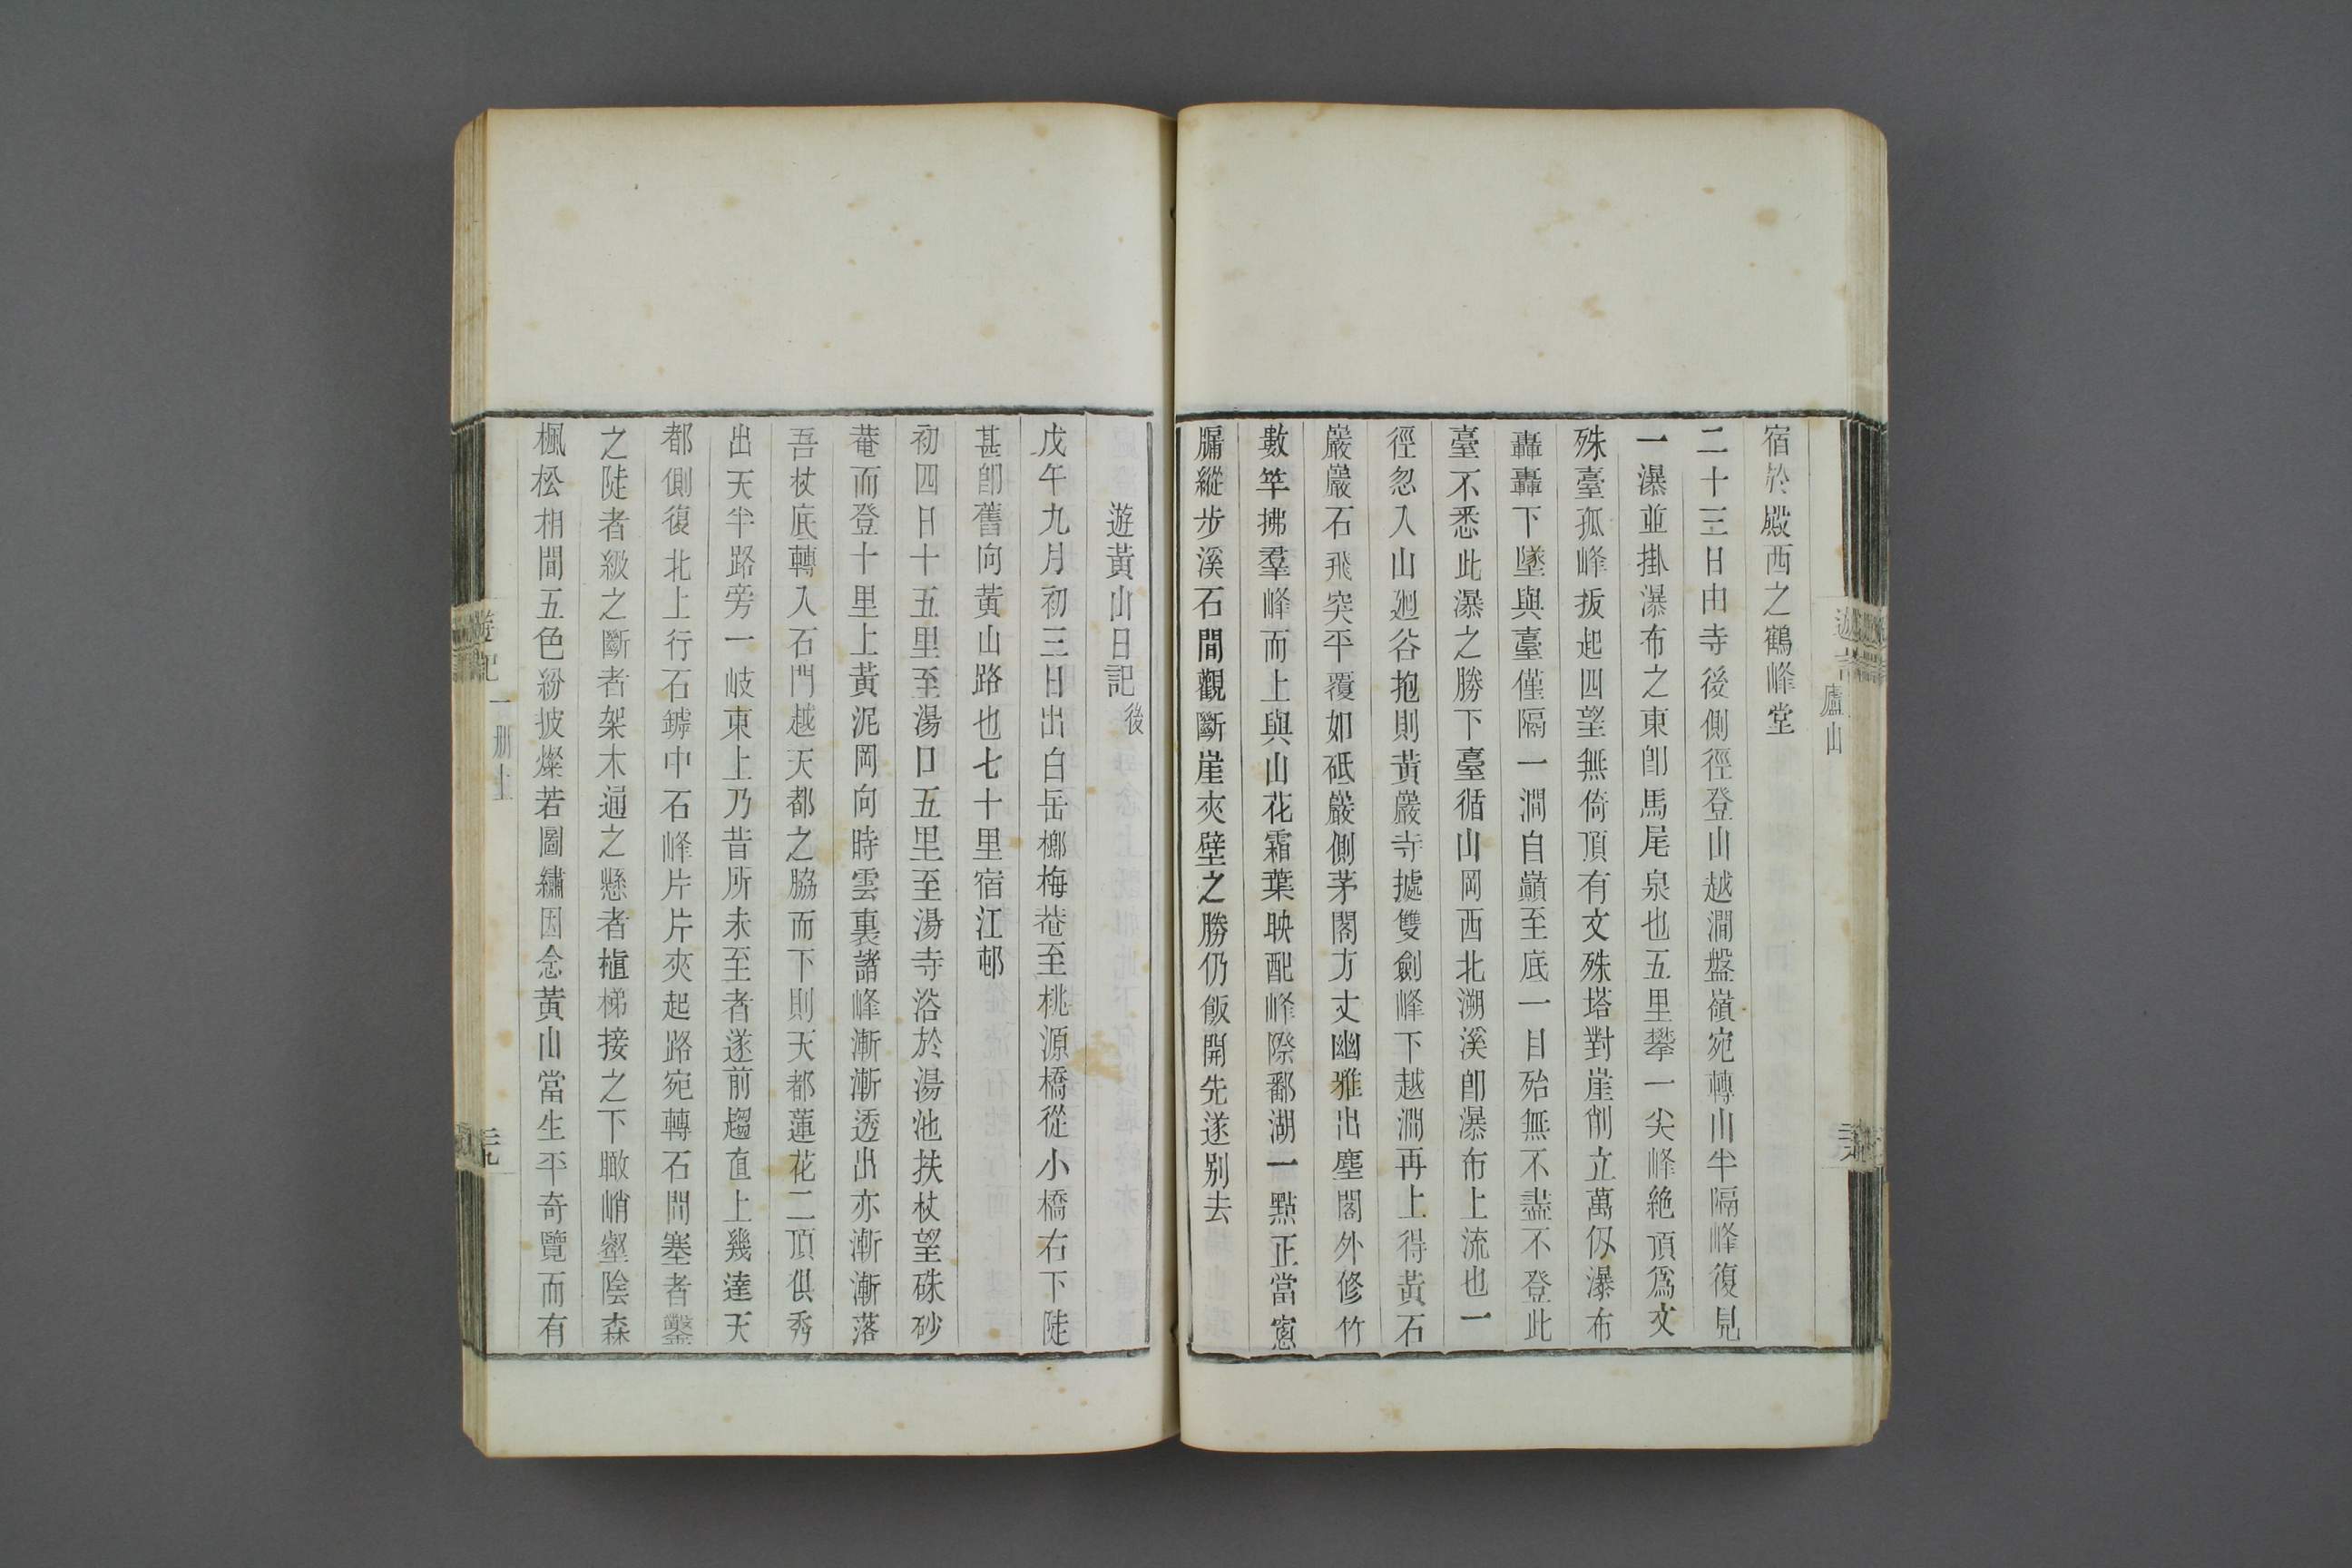 廬山
宿於殿西之鶴峰堂
二十三日由寺後側徑登山越澗盤嶺宛轉山半隔峰復見
一瀑並掛瀑布之東卽馬尾泉也五里攀一尖峰絶頂爲文
殊臺孤峰拔起四望無倚頂有文殊塔對崖削立萬仞瀑布
轟轟下墜與臺僅隔一澗自巔至底一目殆無不盡不登此
臺不悉此瀑之勝下臺循山岡西北溯溪卽瀑布上流也一
徑忽入山廻谷抱則黃巖寺據雙劍峰下越澗再上得黃石
巖巖石飛突平覆如砥巖側茅閣方丈幽雅出塵閣外修竹
數竿拂羣峰而上與山花霜葉映配峰際鄱湖一點正當窻
牖縱步溪石間觀斷崖夾壁之勝仍飯開先遂別去
遊黃山日記後
戊午九月初三日出白岳榔梅菴至桃源橋從小橋右下陡
甚卽舊向黃山路也七十里宿江邨
初四日十五里至湯口五里至湯寺浴於湯池扶杖望硃砂
菴而登十里上黃泥岡向時雲裏諸峰漸漸透出亦漸漸落
吾杖底轉入石門越天都之脇而下則天都蓮花二頂俱秀
出天半路旁一岐東上乃昔所未至者遂前趨直上幾達天
都側復北上行石罅中石峰片片夾起路宛轉石間塞者鑿
之陡者級之斷者架木通之懸者植梯接之下瞰峭壑陰森
楓松相間五色紛披燦若圖繡因念黃山當生平奇覽而有
遊記 一册上